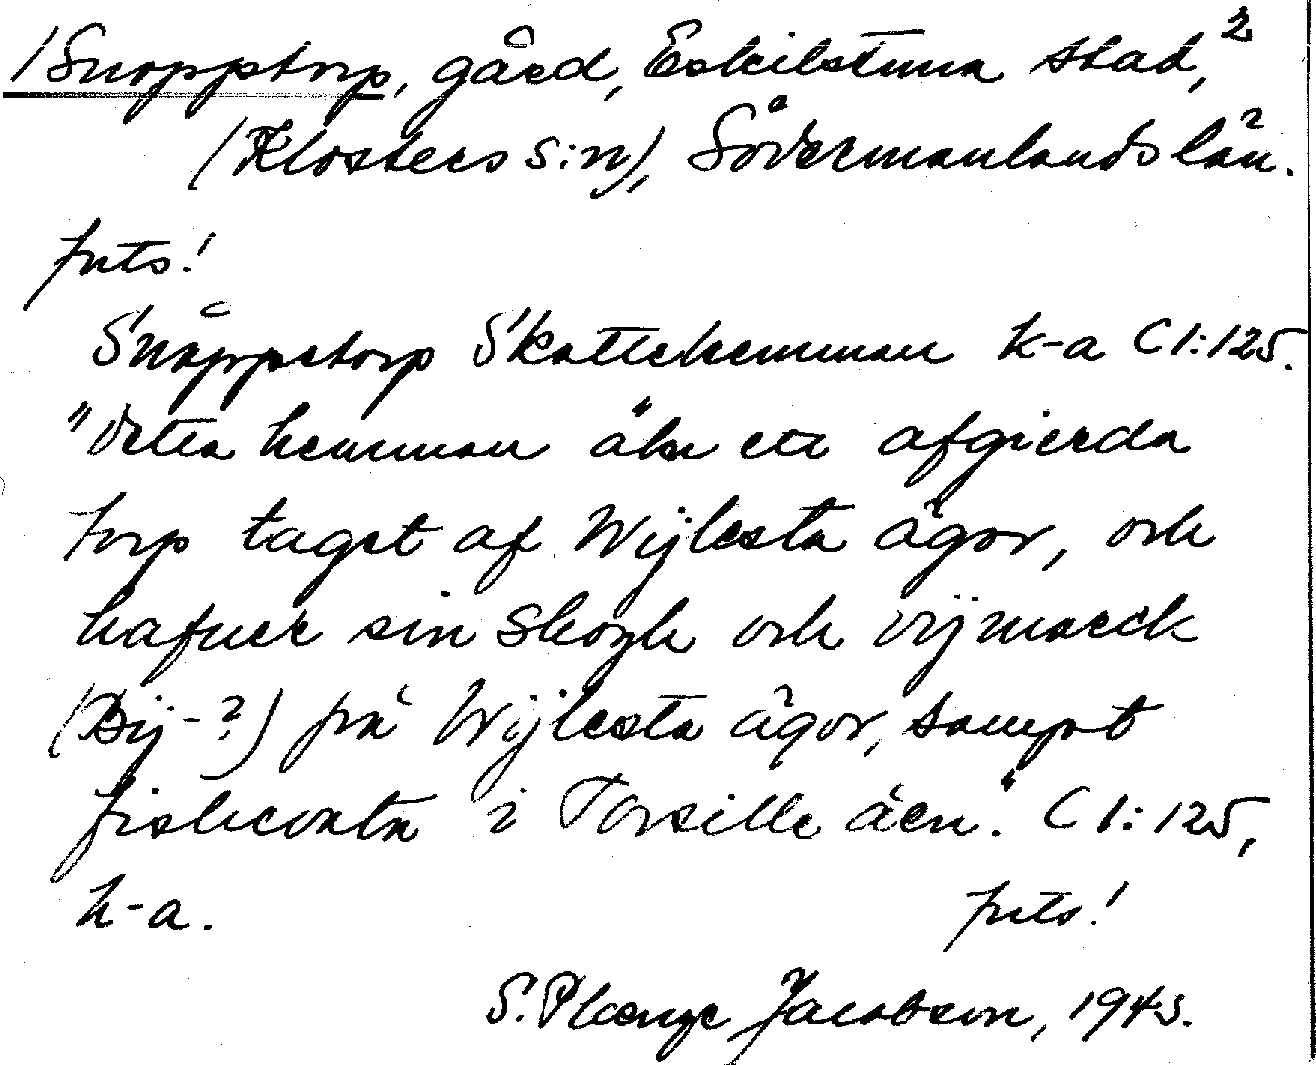 /Snopptorp, gård, Eskilstuna stad,²
(Klosters s:n), Södermanlands län.²
forts!
Snåppetorp Skattehemman k-a C 1:125.
"Detta hemman ähr ett afgierda
torp taget af Wijlesta ägor, och
hafuer sin Skogh och vijmarck
(Bij-?) på Wijlesta ägor, sampt
fiskeconta i Torsille åen." C 1:125,
k-a. forts!
S. Jacobson, 1943.